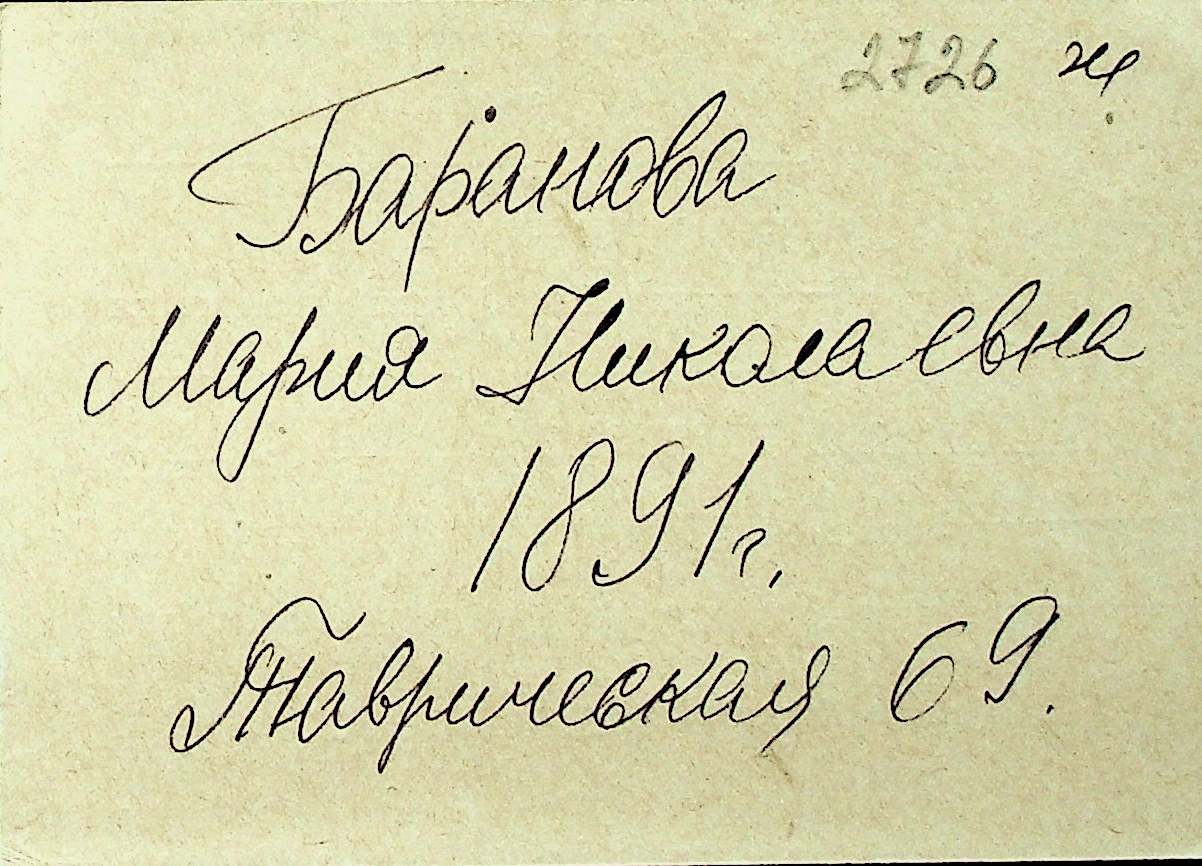 2726 ж
Баранова
Мария Николаевна
1891 г.
Таврическая 69.